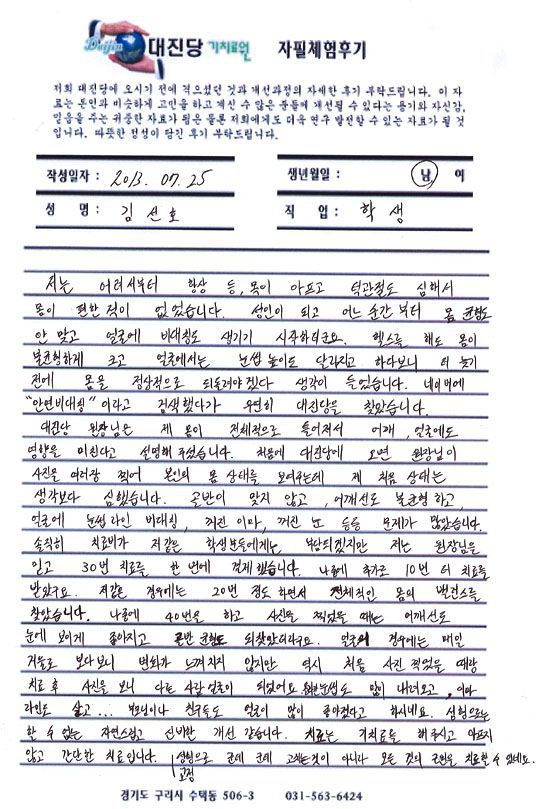 Daijin 대진당 기치료원 자필체험후기
저희 대진당에 오시기 전에 격으셨던 것과 개선과정의 자세한 후기 부탁드립니다. 이 자
료는 본인과 비슷하게 고민을 하고 계신 수 많은 분들께 개선될 수 있다는 용기와 자신감,
믿음을 주는 귀중한 자료가 됨은 물론 저희에게도 더욱 연구 발전할 수 있는 자료가 될 것
입니다. 따뜻한 정성이 담긴 후기 부탁드립니다.
작성일자 : 2013. 07. 25 생년월일 : 남 여
성 명 : 김선호 직 업 : 학생
저는 어려서부터 항상 등, 목이 아프고 턱관절도 심해서
몸이 편한적이 없었습니다. 성인이 되고 어느 순간부터 몸 균형도
안 맞고 얼굴에 비대칭도 생기기 시작하더군요. 헬스를 해도 몸이
불균형하게 크고 얼굴에서는 눈썹 높이도 달라지고 하다보니 더 늦기
전에 몸을 정상적으로 되돌려야겠다 생각이 들었습니다. 네이버에
"안면비대칭" 이라고 검색했다가 우연히 대진당을 찾았습니다.
대진당 원장님은 제 몸이 전체적으로 틀어져서 어깨, 얼굴에도
영향을 미친다고 설명해 주셨습니다. 처음에 대진당에 오면 원장님이
사진을 여러장 찍어 본인의 몸 상태를 보여주는데 제 처음 상태는
생각보다 심했습니다. 골반이 맞지 않고, 어깨선도 불균형 하고,
얼굴에 눈썹 라인 비대칭, 꺼진 이마, 꺼진 눈 등등 문제가 많았습니다.
솔직히 치료비가 저같은 학생분들에게는 부담되겠지만 저는 원장님을
믿고 30번 치료를 한 번에 결제했습니다. 나중에 추가로 10번 더 치료를
받았구요. 저같은 경우에는 20번 정도 하면서 전체적인 몸의 밸런스를
찾았습니다. 나중에 40번을 하고 사진을 찍었을 때는 어깨선도
눈에 보이게 좋아지고 골반 균형도 되찾았더라구요. 얼굴의 경우에는 매일
거울로 보다보니 변화가 느껴지지 않지만 역시 처음 사진 찍었을 때랑
치료 후 사진을 보니 다른 사람 얼굴이 되었어요. 눈썹도 많이 내려오고, 이마
라인도 살고... 부모님이나 친구들도 얼굴이 많이 좋아졌다고 하시네요. 성형으로는
할 수 없는 자연스럽고 신비한 개선 같습니다. 치료는 기치료를 해주시고 아프지
않고 간단한 치료입니다. 성형으로 군데 군데 고치는것이 아니라 모든 것의 근원을 치료할 수 있네요.
교정
경기도 구리시 수택동 506-3 031-563-6424